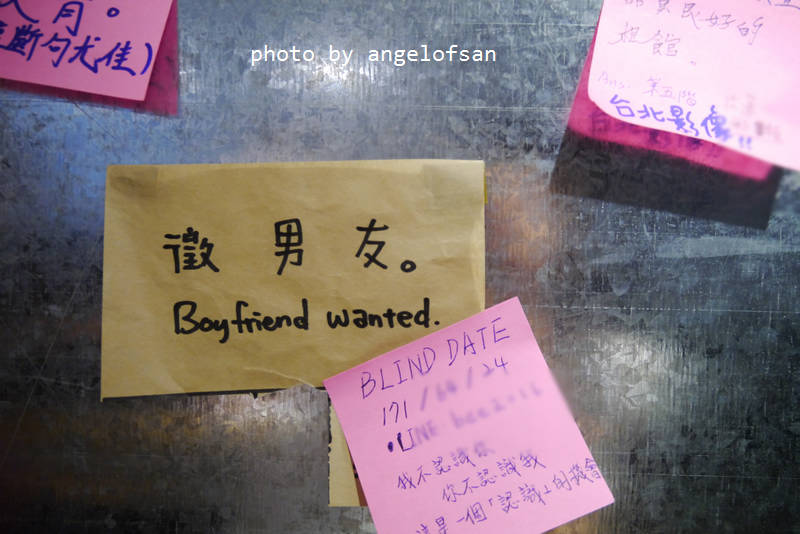 photo by angelofsan
月。
斷勿尤佳)
好的
館。
Ans: 第五階
台北影像!!
徵 男 友。
Boyfriend wanted.
BLIND DATE
171 / 64 / 24
LINE
我不認識你
你不認識我
這是一個「認識」的機會